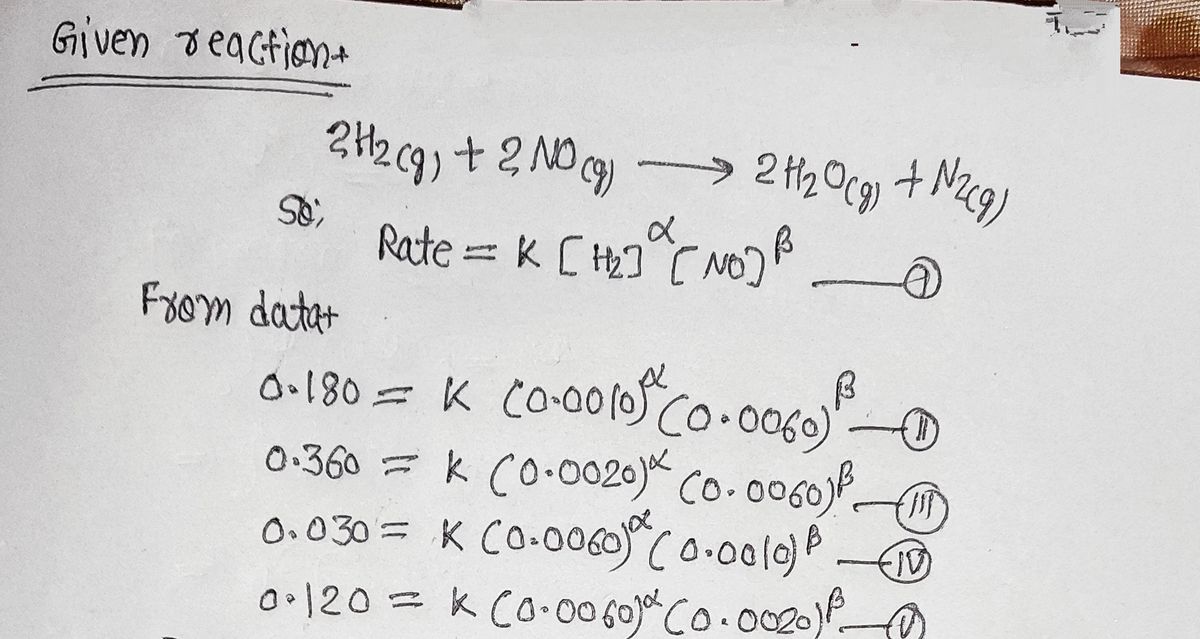 Given reaction→
2H₂(g) + 2NO(g) ⟶ 2H₂O(g) + N₂(g)
So;
Rate = K [H₂]^α [NO]^β —Ⓘ
From data→
0.180 = K (0.0010)^α (0.0060)^β —Ⅱ
0.360 = K (0.0020)^α (0.0060)^β —Ⅲ
0.030 = K (0.0060)^α (0.0010)^β —Ⅳ
0.120 = K (0.0060)^α (0.0020)^β —Ⅴ